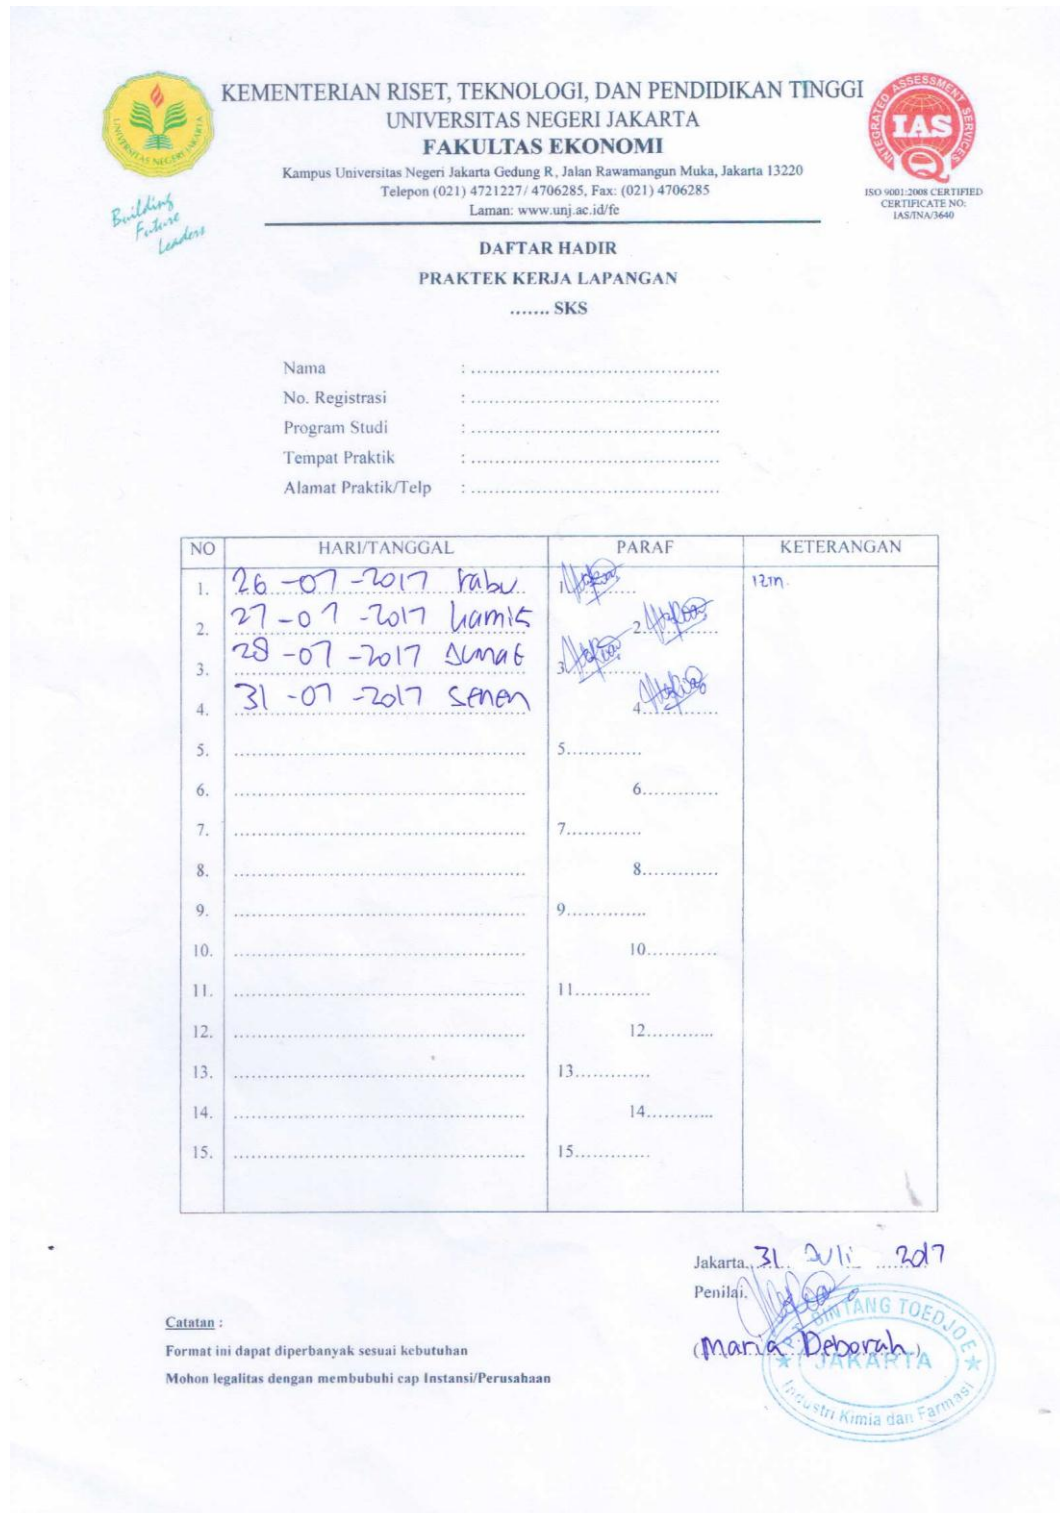 KEMENTERIAN RISET, TEKNOLOGI, DAN PENDIDIKAN TINGGI
UNIVERSITAS NEGERI JAKARTA
FAKULTAS EKONOMI
Kampus Universitas Negeri Jakarta Gedung R, Jalan Rawamangun Muka, Jakarta 13220
Telepon (021) 4721227/ 4706285, Fax: (021) 4706285
Laman: www.unj.ac.id/fe
UNIVERSITAS NEGERI JAKARTA
Building
Future
Leaders
INTEGRATED ASSESSMENT SERVICES
IAS
Q
ISO 9001:2008 CERTIFIED
CERTIFICATE NO:
IAS/INA/3640
DAFTAR HADIR
PRAKTEK KERJA LAPANGAN
....... SKS
Nama : ..........................................
No. Registrasi : ..........................................
Program Studi : ..........................................
Tempat Praktik : ..........................................
Alamat Praktik/Telp : ..........................................
NO HARI/TANGGAL PARAF KETERANGAN
1. 26-07-2017 rabu 1. izin.
2. 27-07-2017 kamis 2.
3. 28-07-2017 Jumat 3.
4. 31-07-2017 senen 4.
5. 5.............
6. 6.............
7. 7.............
8. 8.............
9. 9.............
10. 10............
11. 11............
12. 12............
13. 13............
14. 14............
15. 15............
Jakarta, 31 Juli 2017
Penilai.
(Maria Deborah)
P.T. BINTANG TOEDJOE
JAKARTA
Industri Kimia dan Farmasi
Catatan :
Format ini dapat diperbanyak sesuai kebutuhan
Mohon legalitas dengan membubuhi cap Instansi/Perusahaan